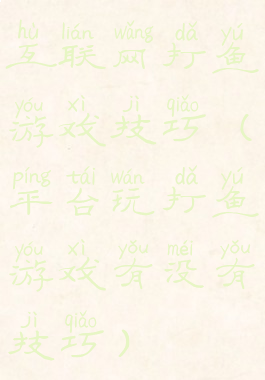 hù lián wǎng dǎ yú
互联网打鱼
yóu xì jì qiǎo
游戏技巧（
píng tái wán dǎ yú
平台玩打鱼
yóu xì yǒu méi yǒu
游戏有没有
jì qiǎo
技巧）